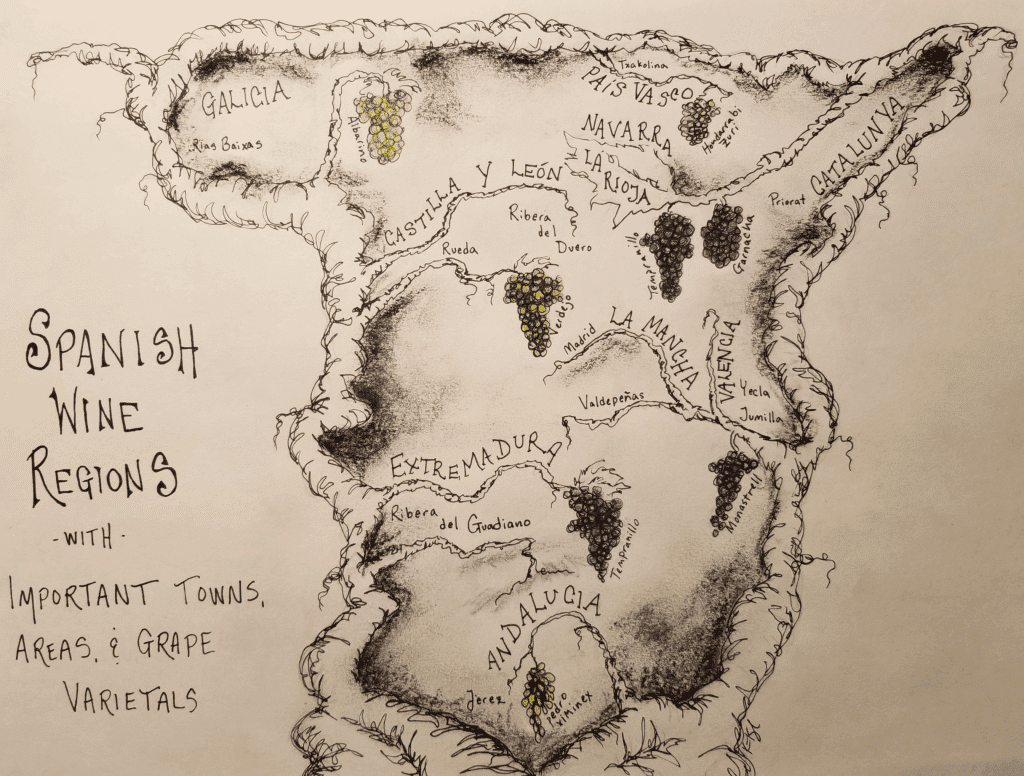 SPANISH
WINE
REGIONS
- WITH -
IMPORTANT TOWNS,
AREAS, & GRAPE
VARIETALS
GALICIA
Rias Baixas
Albarino
Txakolina
PAIS VASCO
Hondarrabi
Zuri
NAVARRA
LA
RIOJA
CATALUNYA
Priorat
CASTILLA Y LEÓN
Ribera
del
Duero
Rueda
Verdejo
Tempranillo
Garnacha
Madrid
LA MANCHA
Valdepeñas
VALENCIA
Yecla
Jumilla
Monastrell
EXTREMADURA
Ribera
del Guadiano
Tempranillo
ANDALUCIA
Jerez
Pedro
Ximinez